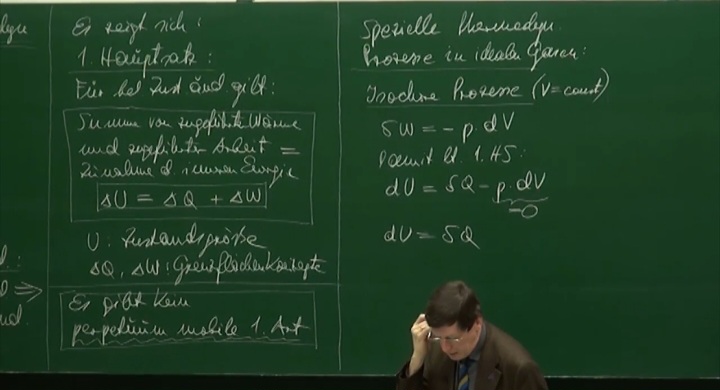 Es zeigt sich:
1. Hauptsatz:
Für bel Zust änd. gilt:
Summe von zugeführter Wärme
und zugeführter Arbeit =
Zunahme d. inneren Energie
ΔU = ΔQ + ΔW
U: Zustandsgröße
ΔQ, ΔW: Grenzflächenkonzepte
Es gibt kein
perpetuum mobile 1. Art
d.
d ⇒
nd.
Spezielle thermodyn.
Prozesse in idealen Gasen:
Isochore Prozesse (V = const)
δW = - p. dV
Damit lt. 1. HS:
dU = δQ - p. dV
=0
dU = δQ